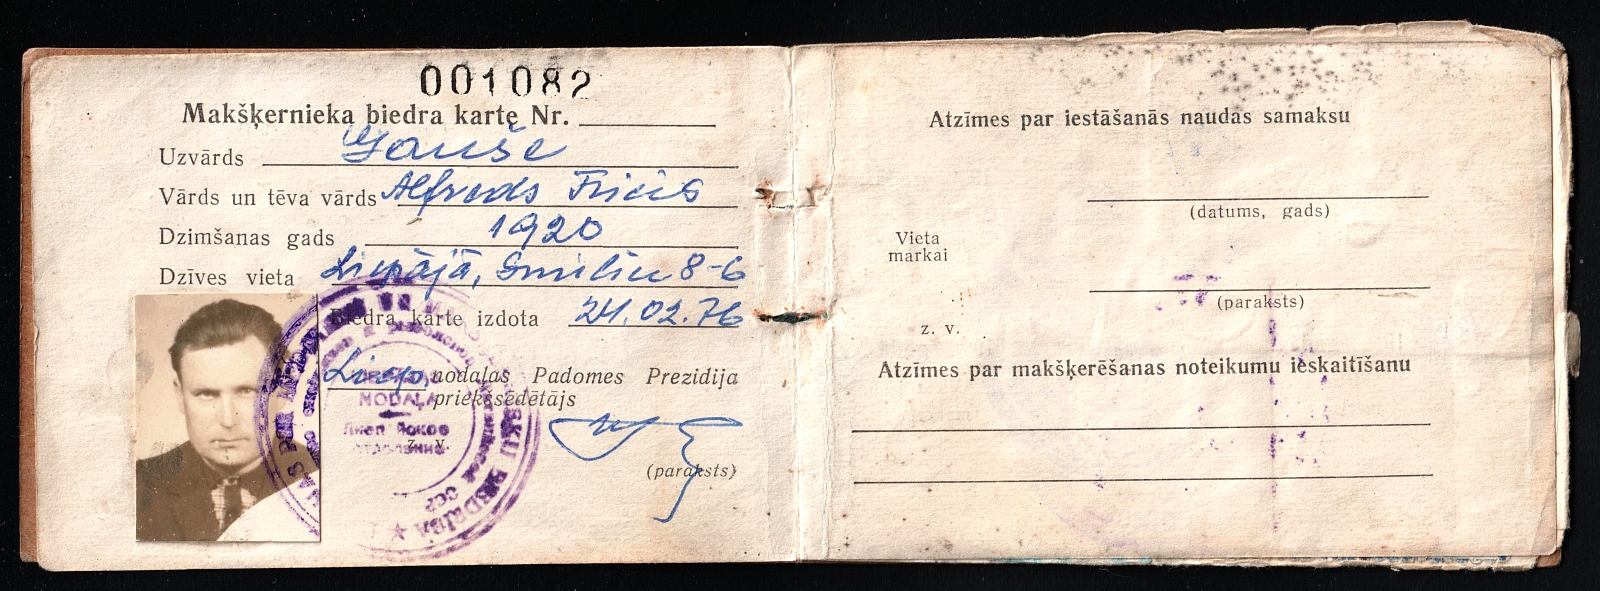 001082
Makšķernieka biedra karte Nr.
Uzvārds Gauše
Vārds un tēva vārds Alfreds Fricis
Dzimšanas gads 1920
Dzīves vieta Liepājā, Smilšu 8-6
Biedra karte izdota 24.02.76
Liep. nodaļas Padomes Prezidija
priekšsēdētājs
z. v.
(paraksts)
NODAĻA
Atzīmes par iestāšanās naudas samaksu
(datums, gads)
Vieta
markai
(paraksts)
z. v.
Atzīmes par makšķerēšanas noteikumu ieskaitīšanu